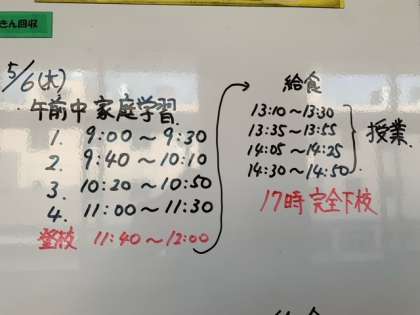 きん回収
5/6(木)
午前中 家庭学習.
1. 9:00～9:30
2. 9:40～10:10
3. 10:20～10:50
4. 11:00～11:30
登校 11:40～12:00
給食
13:10～13:30
13:35～13:55
14:05～14:25
14:30～14:50
授業.
17時 完全下校